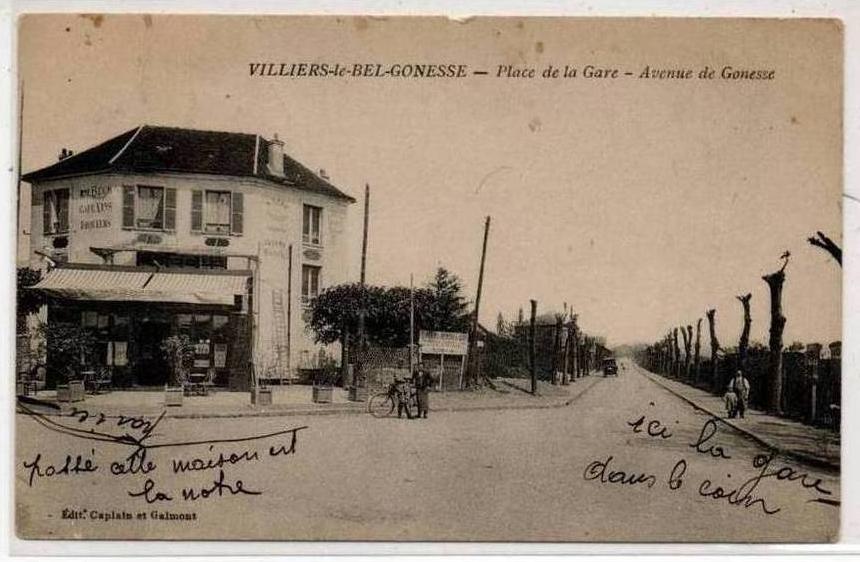 VILLIERS-le-BEL-GONESSE — Place de la Gare - Avenue de Gonesse
CAFÉ VINS
passé cette maison est
la notre
ici la gare
dans le coin
Édit. Caplain et Galmont